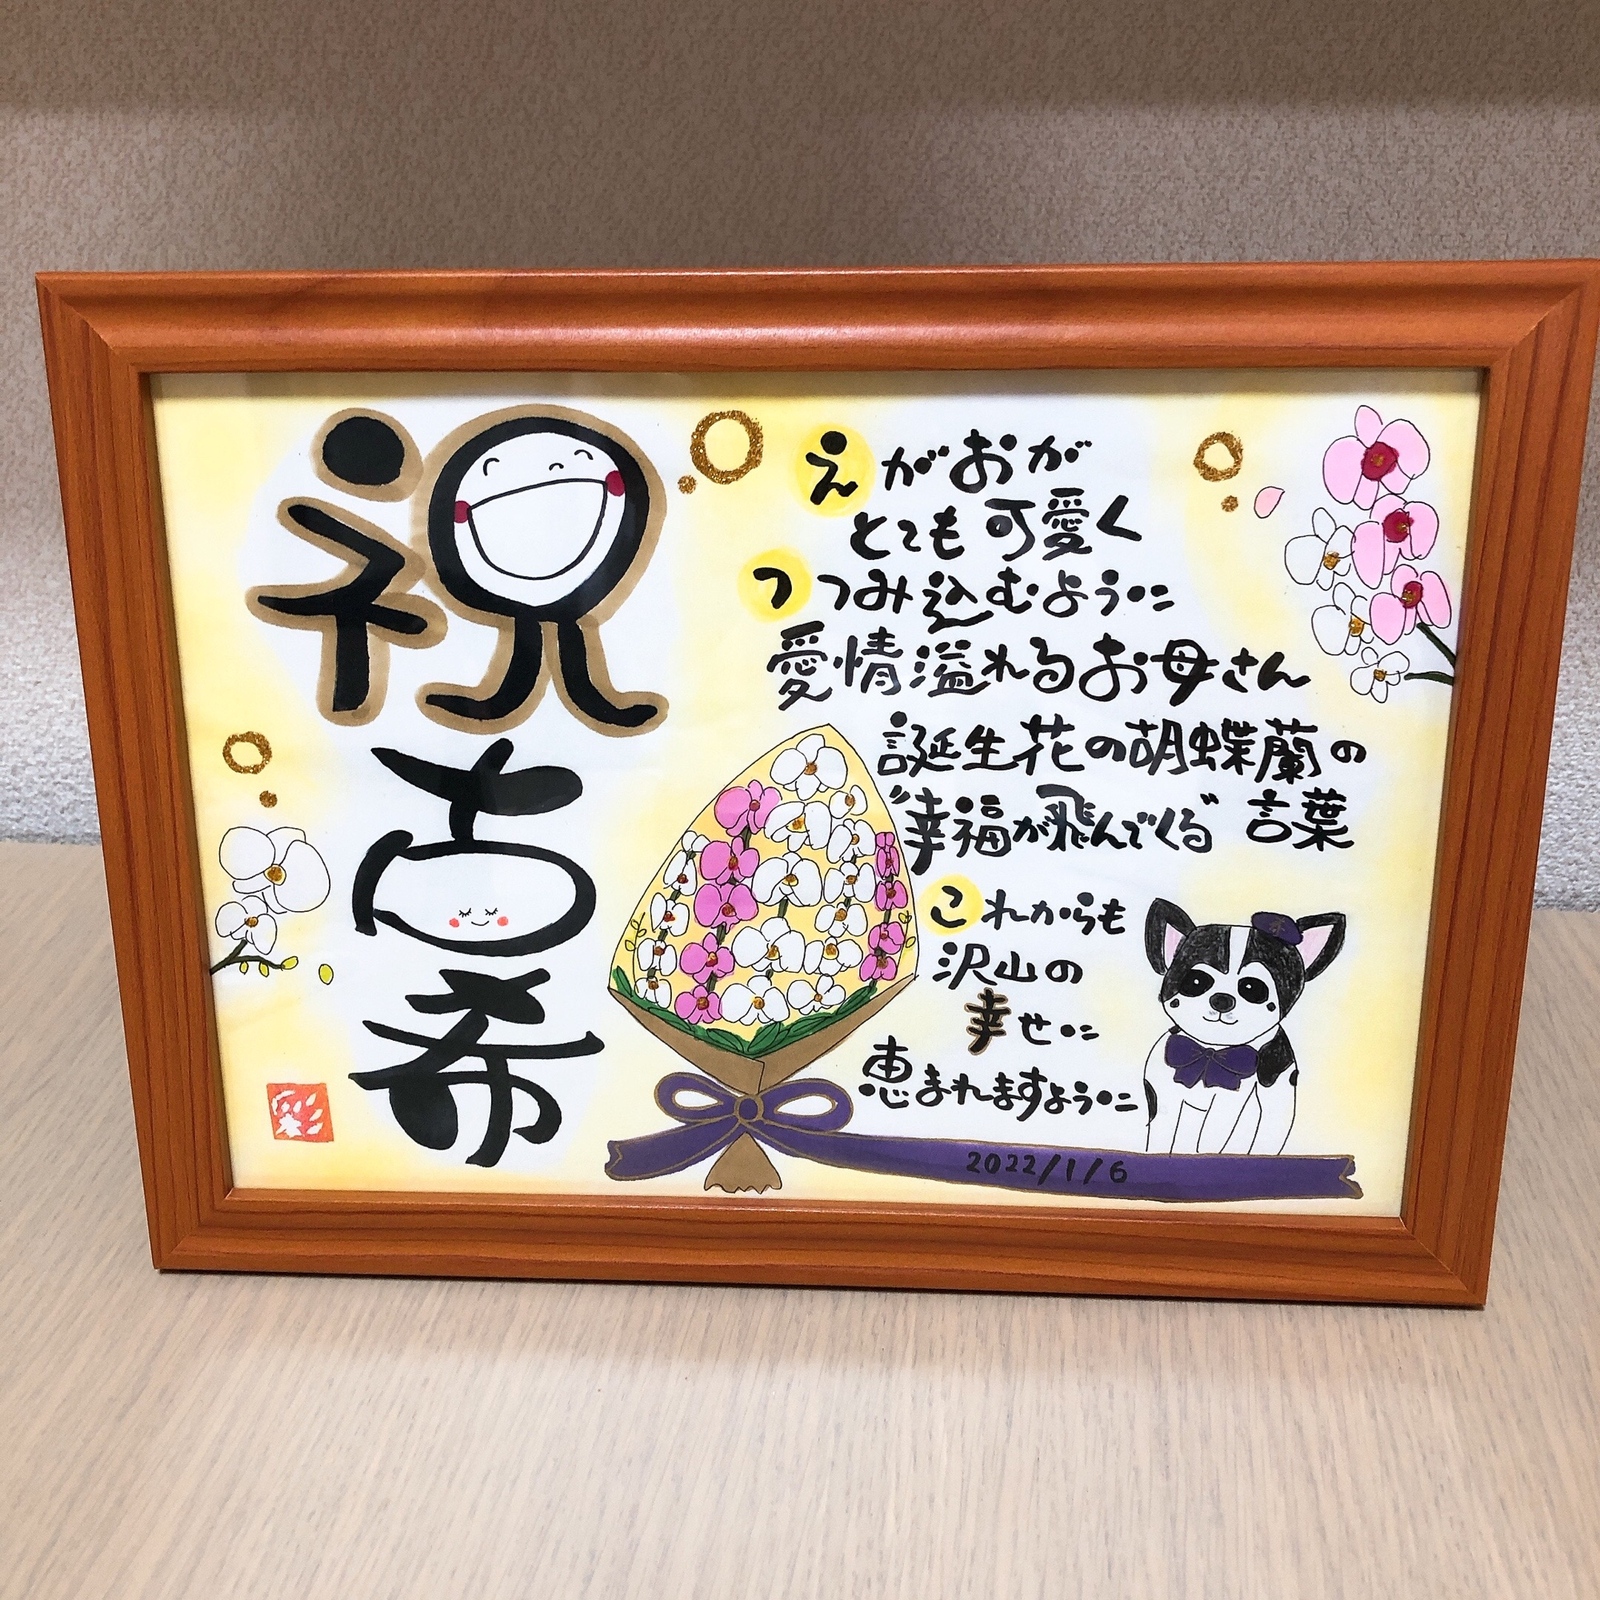 祝
古希
えがおが
とても可愛く
つつみ込むように
愛情溢れるお母さん
誕生花の胡蝶蘭の
"幸福が飛んでくる"言葉
これからも
沢山の
幸せに
恵まれますように
2022/1/6